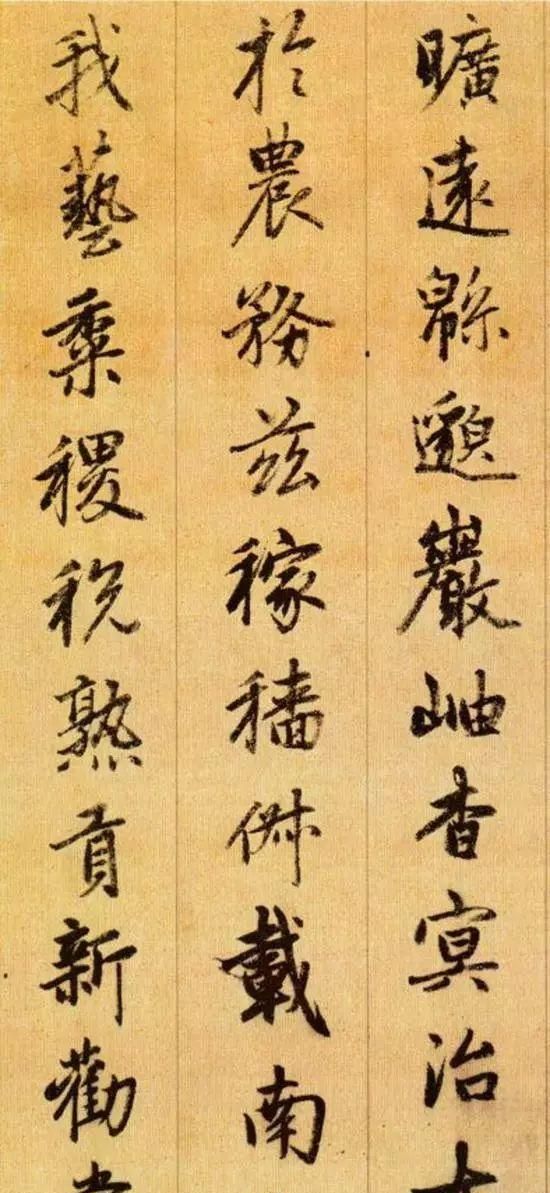 曠遠緜邈巖岫杳冥治本
於農務茲稼穡俶載南
我藝黍稷稅熟貢新勸賞